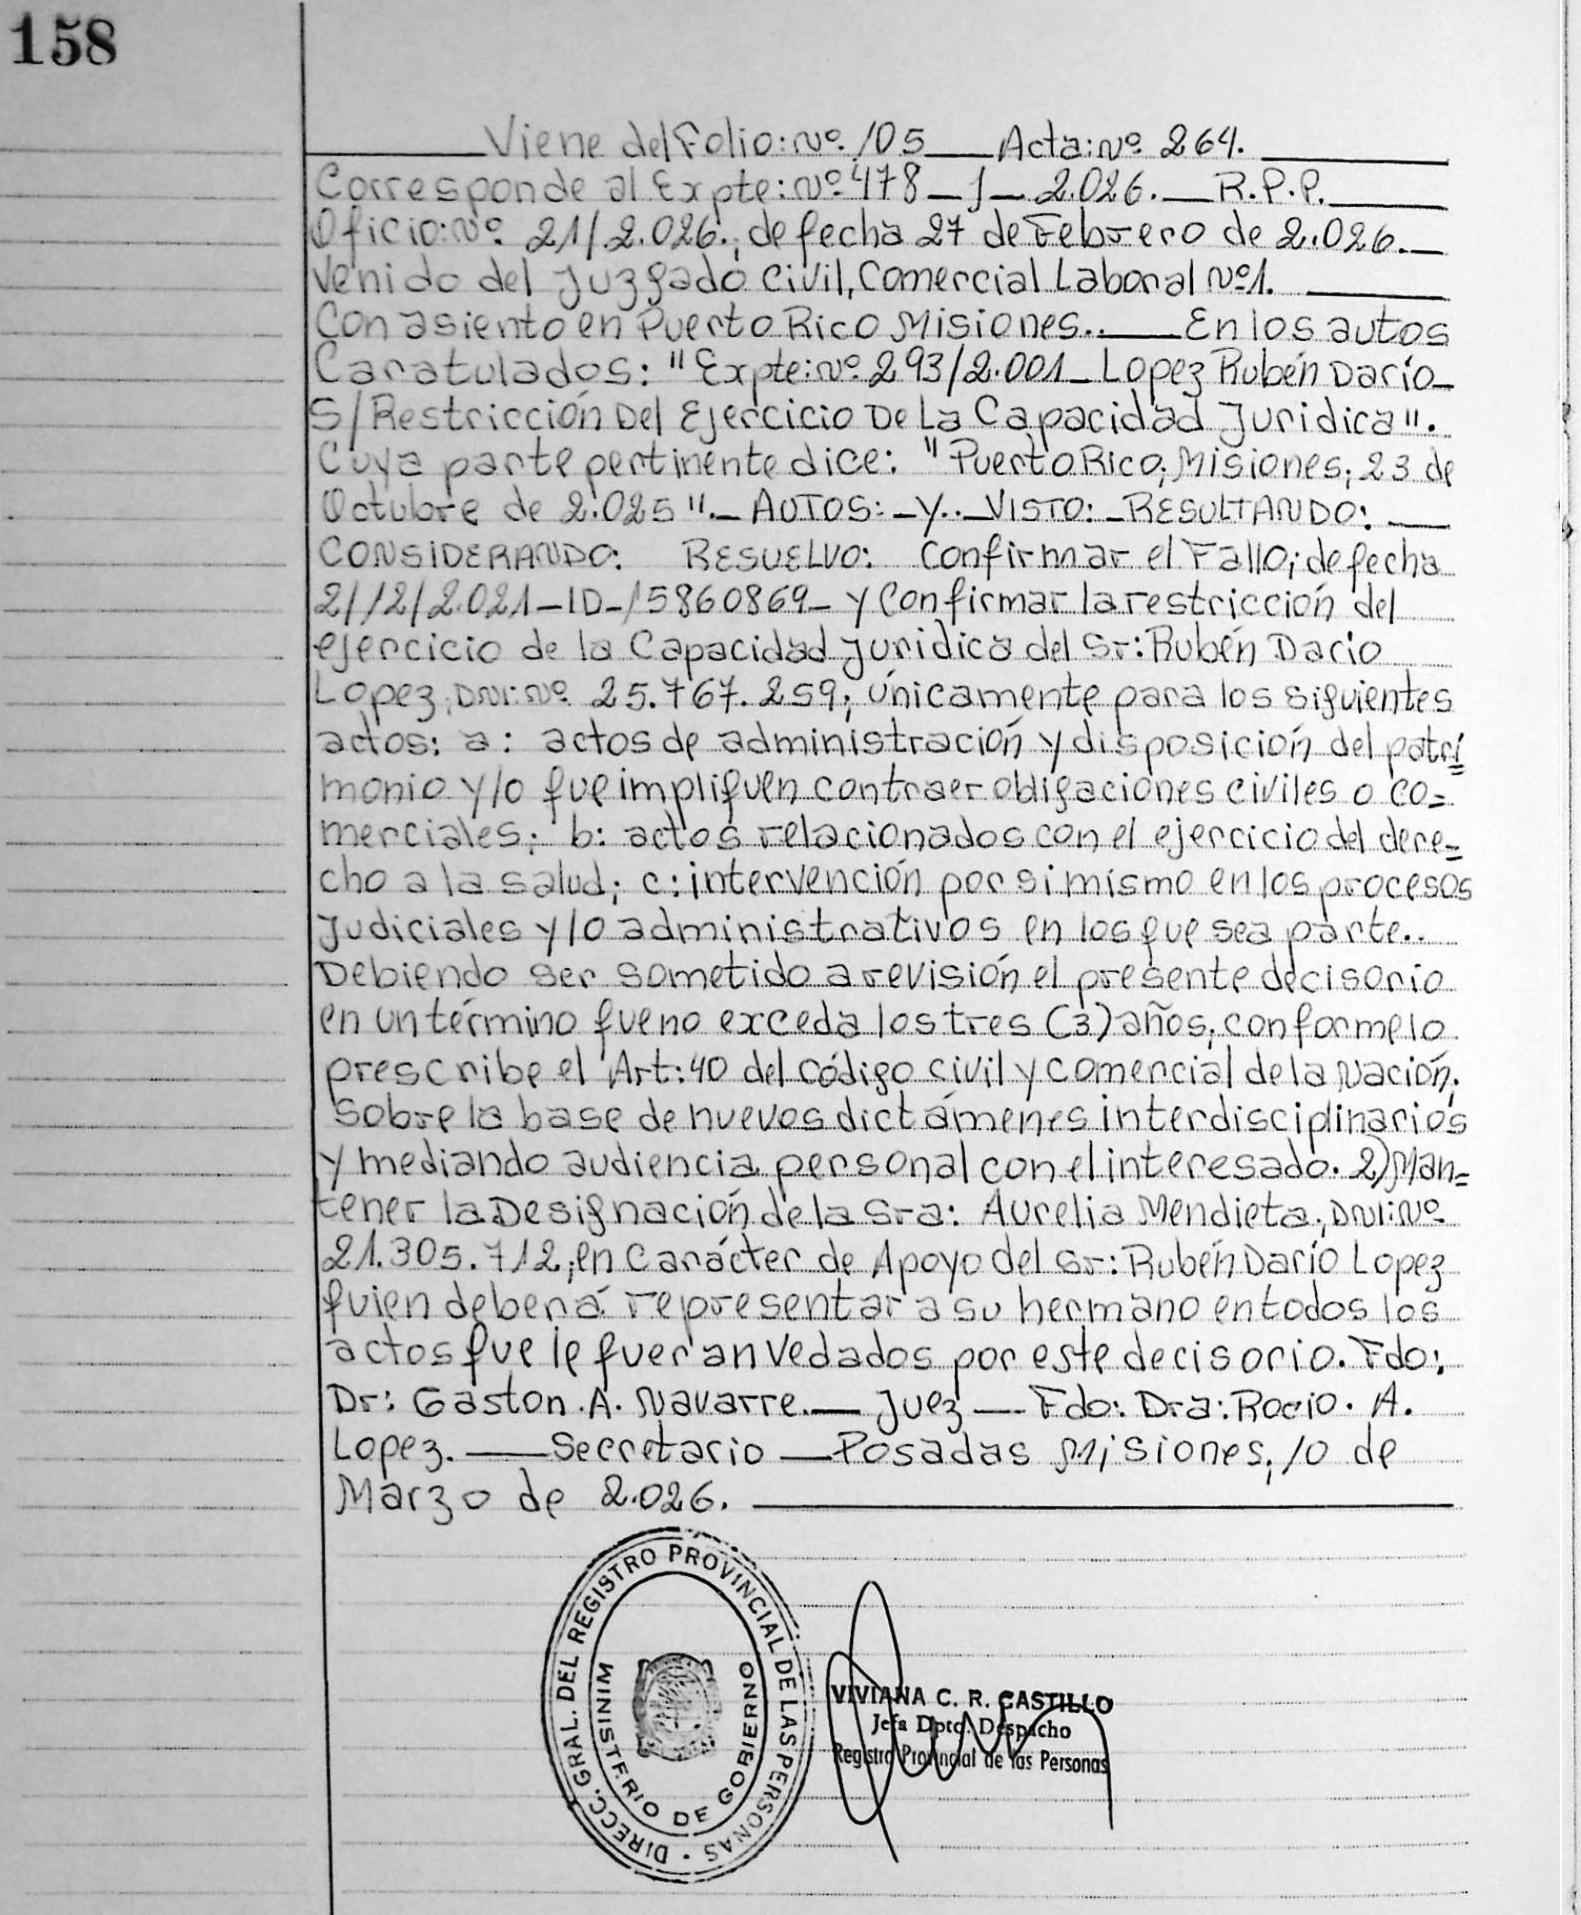 158
Viene del Folio: Nº. 105 Acta: Nº 264.
Corresponde al Expte: Nº 478 - J - 2.026. R.P.P.
Oficio: Nº. 21/2.026., de fecha 27 de Febrero de 2.026.
Venido del Juzgado Civil, Comercial Laboral Nº1.
Con asiento en Puerto Rico Misiones.. En los autos
Caratulados: "Expte: Nº. 293/2.001 - Lopez Rubén Darío
S/Restricción Del Ejercicio De La Capacidad Juridica".
Cuya parte pertinente dice: "Puerto Rico, Misiones, 23 de
Octubre de 2.025". - AUTOS: - Y.. - VISTO: - RESULTANDO:
CONSIDERANDO: RESUELVO: Confirmar el Fallo; de fecha
2/12/2.021 - ID - 15860869 - y Confirmar la restricción del
ejercicio de la Capacidad Juridica del Sr: Rubén Dario
Lopez, DNI: Nº. 25.767.259; únicamente para los siguientes
actos: a: actos de administración y disposición del patri=
monio y/o que impliquen contraer obligaciones civiles o co=
merciales; b: actos relacionados con el ejercicio del dere=
cho a la salud; c: intervención por si mismo en los procesos
Judiciales y/o administrativos en los que sea parte..
Debiendo ser sometido a revisión el presente decisorio
en un término que no exceda los tres (3) años, conforme lo
prescribe el Art: 40 del código civil y comercial de la Nación,
sobre la base de nuevos dictámenes interdisciplinarios
y mediando audiencia personal con el interesado. 2) Man=
tener la Designación de la Sra: Aurelia Mendieta, DNI: Nº
21.305.712, en Carácter de Apoyo del Sr: Rubén Darío Lopez
quien deberá representar a su hermano en todos los
actos que le fueran vedados por este decisorio. Fdo:
Dr: Gaston. A. Navarre. — Juez — Fdo: Dra: Rocio. A.
Lopez. — Secretario — Posadas Misiones, 10 de
Marzo de 2.026.
DIRECC. GRAL. DEL REGISTRO PROVINCIAL DE LAS PERSONAS
MINISTERIO DE GOBIERNO
VIVIANA C. R. CASTILLO
Jefa Dpto. Despacho
Registro Provincial de las Personas